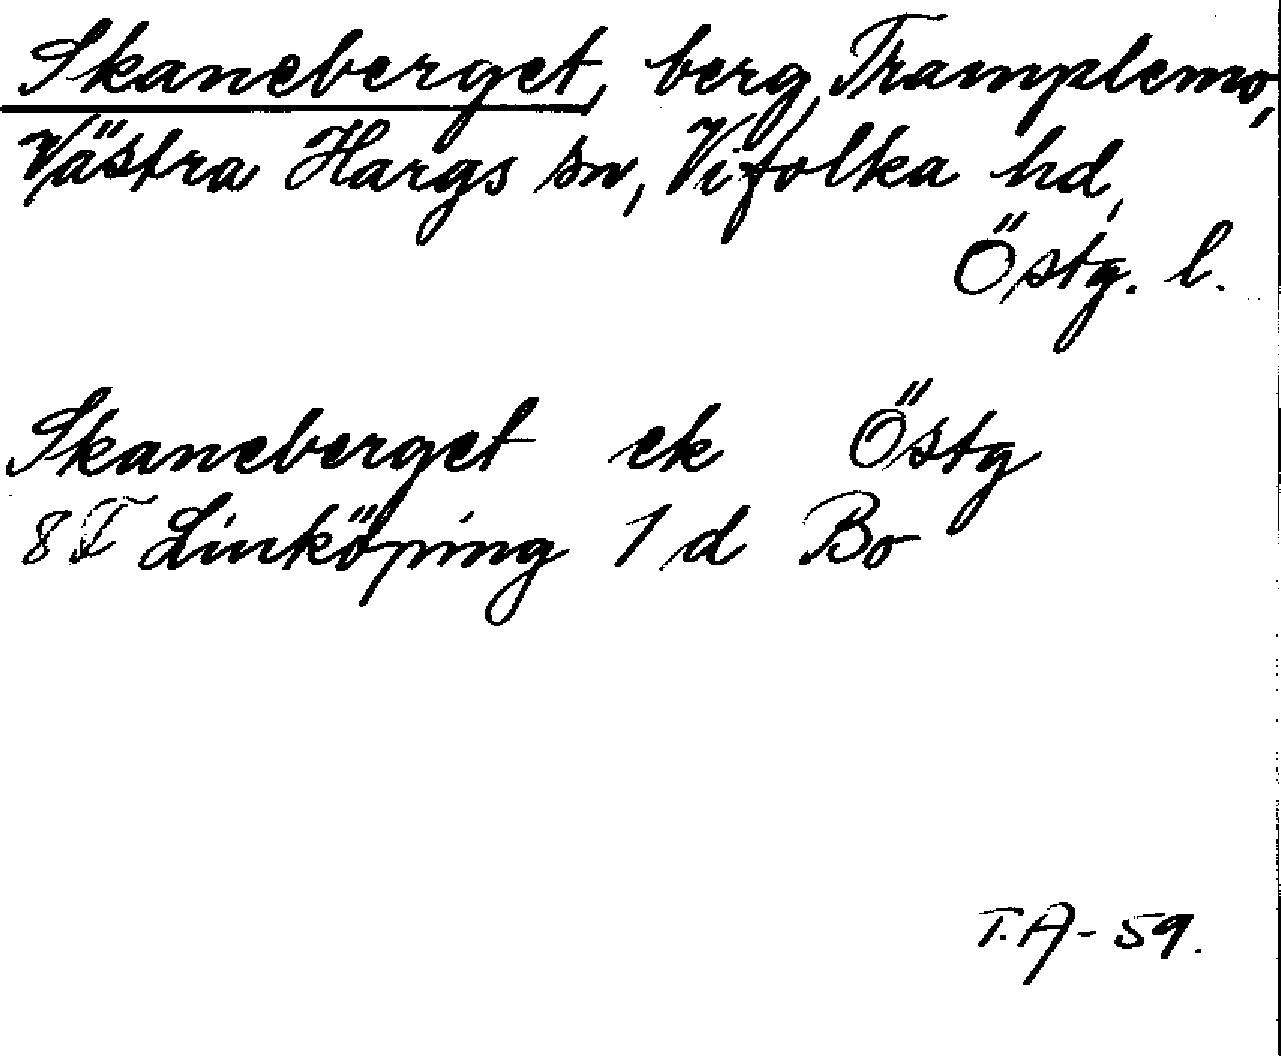 Skaneberget, berg, Tramplemo,
Västra Hargs sn, Vifolka hd,
Östg. l.
Skaneberget ek Östg
8 F Linköping 1 d Bo
T.A-59.